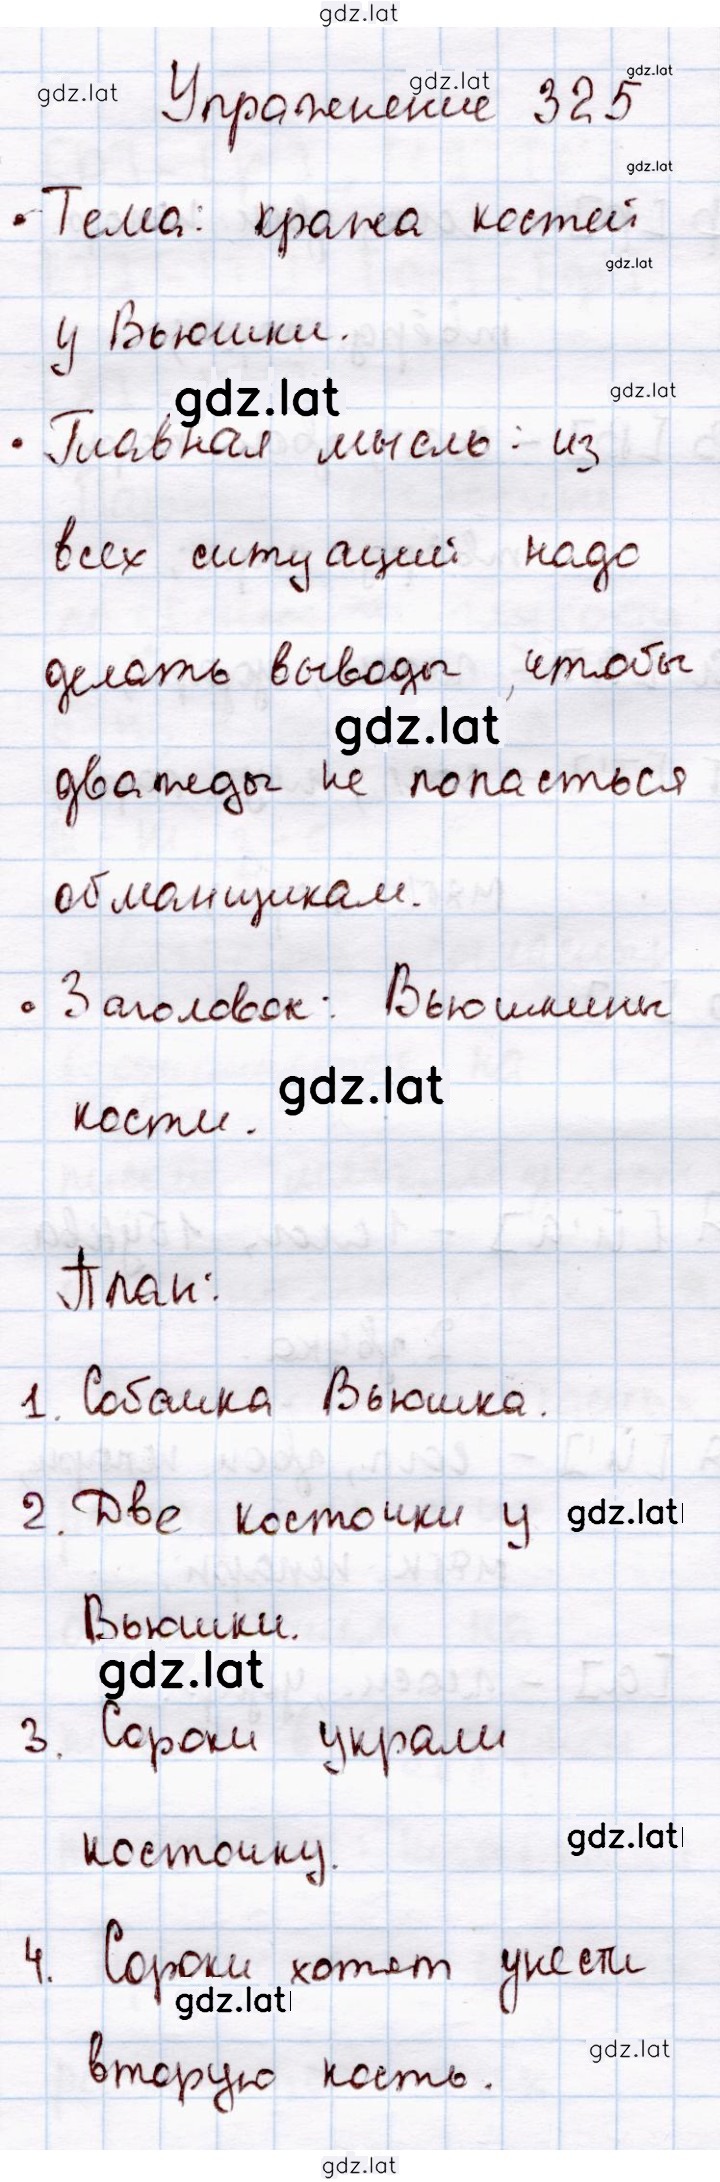 gdz.lat
gdz.lat
gdz.lat
gdz.lat
Упражнение 325
gdz.lat
• Тема: кража костей
gdz.lat
у Вьюшки.
gdz.lat
gdz.lat
• Главная мысль: из
всех ситуаций надо
делать выводы, чтобы
gdz.lat
дважды не попасться
обманщикам.
• Заголовок: Вьюшкины
gdz.lat
кости.
План:
1. Собачка Вьюшка.
2. Две косточки у
gdz.lat
Вьюшки.
gdz.lat
3. Сороки украли
косточку.
gdz.lat
4. Сороки хотят унести
gdz.lat
gdz.lat
вторую кость.
gdz.lat